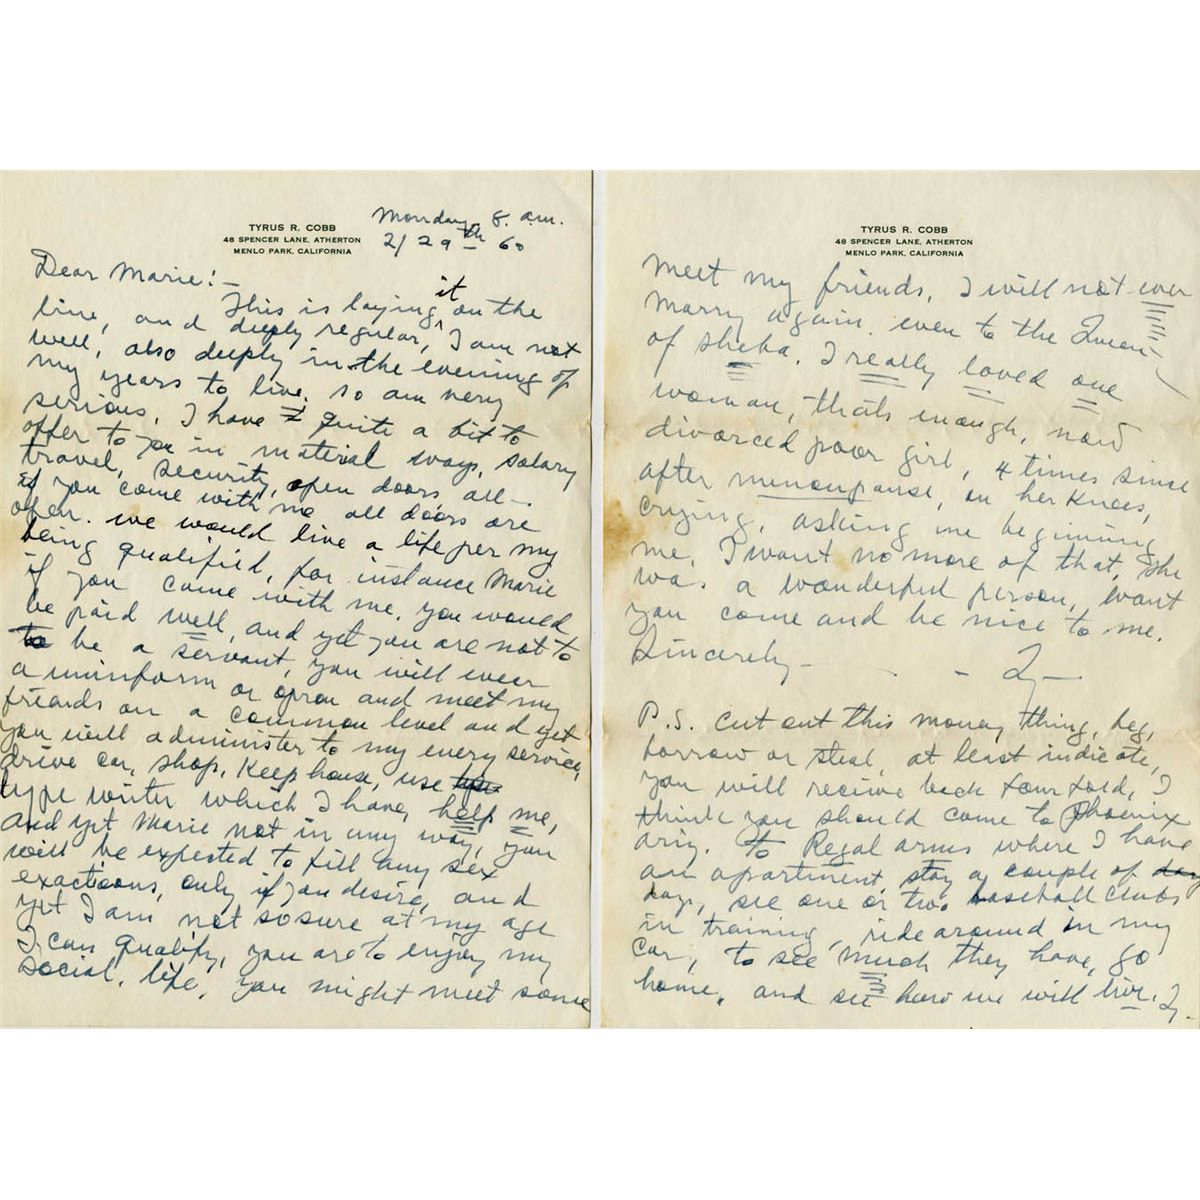 Monday 8 a.m.
TYRUS R. COBB
48 SPENCER LANE, ATHERTON
MENLO PARK, CALIFORNIA
2/29th 60
Dear Marie:-
This is laying it on the
line, and deeply regular, I am not
well, also deeply in the evening of
my years to live, so am very
serious, I have quite a bit to
offer to you in material ways, salary
travel, security, open doors all-
if you come with me all doors are
open. we would live a life per my
being qualified, for instance Marie
if you come with me, you would
be paid well, and yet you are not to
be a servant, you will wear
a uniniform or apron and meet my
friends on a common level and yet
you will administer to my every service,
drive car, shop, keep house, use
type writer which I have, help me,
and yet Marie not in any way, you
will be expected to fill any sex
exactions, only if you desire, and
yet I am not so sure at my age
I can qualify, you are to enjoy my
social, life, you might meet some
TYRUS R. COBB
48 SPENCER LANE, ATHERTON
MENLO PARK, CALIFORNIA
meet my friends, I will not ever
marry again. even to the Queen
of sheba. I really loved one
woman, thats enough, now
divorced poor girl, 4 times since
after menoupause, on her knees,
crying, asking me beginning
me, I want no more of that, she
was a wonderful person, want
you come and be nice to me.
Sincerely- - Ty-
P.S. cut out this money thing, beg,
borrow or steal, at least indicate,
you will receive back four fold, I
think you should come to Phoenix
ariz. to Regal arms where I have
an apartment, stay a couple of day
days, see one or two baseball clubs
in training, ride around in my
car, to see much they have, go
home, and see how we will live. Ty-